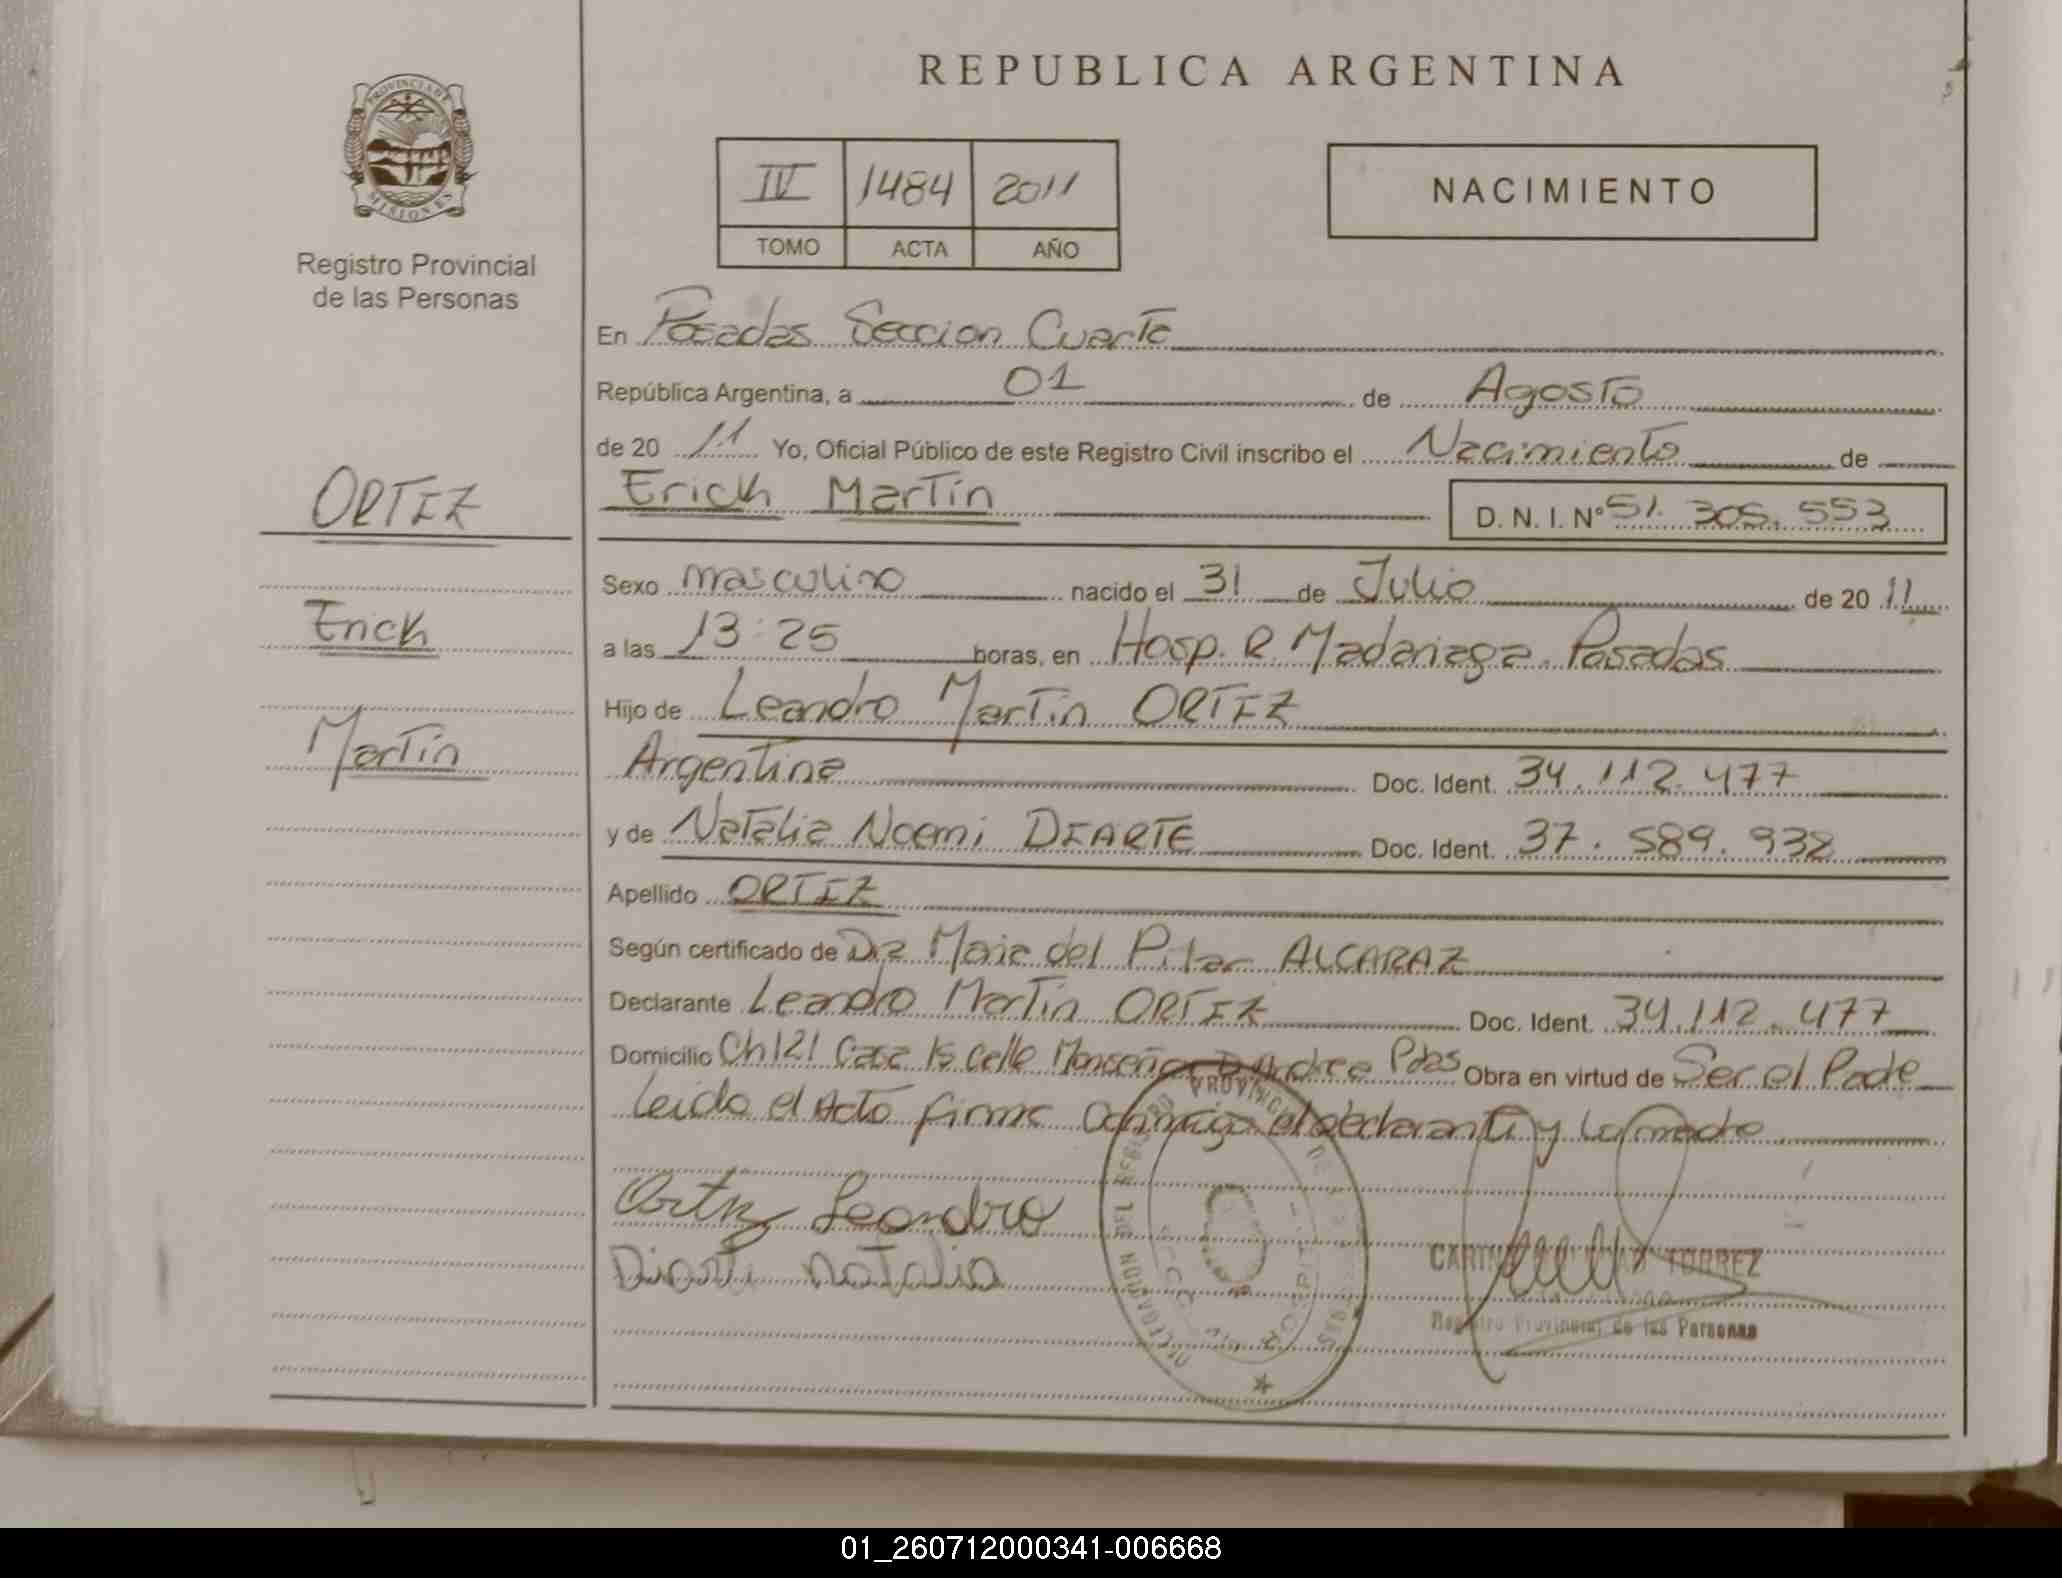 REPUBLICA ARGENTINA
PROVINCIA DE
MISIONES
Registro Provincial
de las Personas
IV 1484 2011
TOMO ACTA AÑO
NACIMIENTO
En Posadas Seccion Cuarta
República Argentina, a 01 de Agosto
de 20 11 Yo, Oficial Público de este Registro Civil inscribo el Nacimiento de
Erich Martín D. N. I. Nº 51. 305. 553
ORTIZ
Erich
Martín
Sexo masculino nacido el 31 de Julio de 20 11
a las 13:25 horas, en Hosp. R. Madariaga. Posadas
Hijo de Leandro Martín ORTIZ
Argentina Doc. Ident. 34.112.477
y de Natalia Noemi DIARTE Doc. Ident. 37.589.938
Apellido ORTIZ
Según certificado de Dra Maria del Pilar ALCARAZ
Declarante Leandro Martin ORTIZ Doc. Ident. 34.112.477
Domicilio Ch 121 Casa 15 Calle Monseñor D'Andrea Pdas Obra en virtud de Ser el Padre
Leido el Acto firma conmigo el declarante y la madre
Ortiz Leandro
Diarte Natalia
DIRECCION DEL REGISTRO PROVINCIAL DE LAS PERSONAS
TORREZ
Registro Provincial de las Personas
01_260712000341-006668